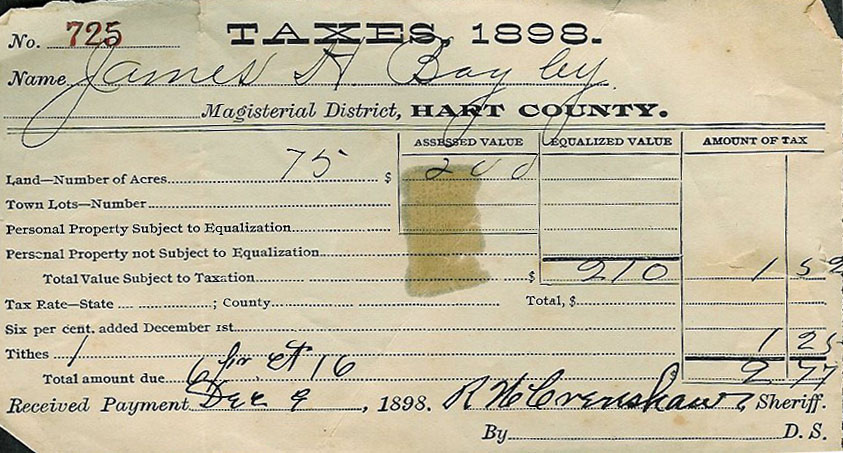 No. 725 TAXES, 1898.
Name James H Bagby
Magisterial District, HART COUNTY.
ASSESSED VALUE EQUALIZED VALUE AMOUNT OF TAX
Land—Number of Acres 75 $ 200
Town Lots—Number
Personal Property Subject to Equalization
Personal Property not Subject to Equalization
Total Value Subject to Taxation $ 210 1 52
Tax Rate—State ; County Total, $
Six per cent. added December 1st
Tithes 1 1 25
Total amount due 6 pr ct 16 $ 2 77
Received Payment Dec 9, 1898. R W Crenshaw, Sheriff.
By D. S.